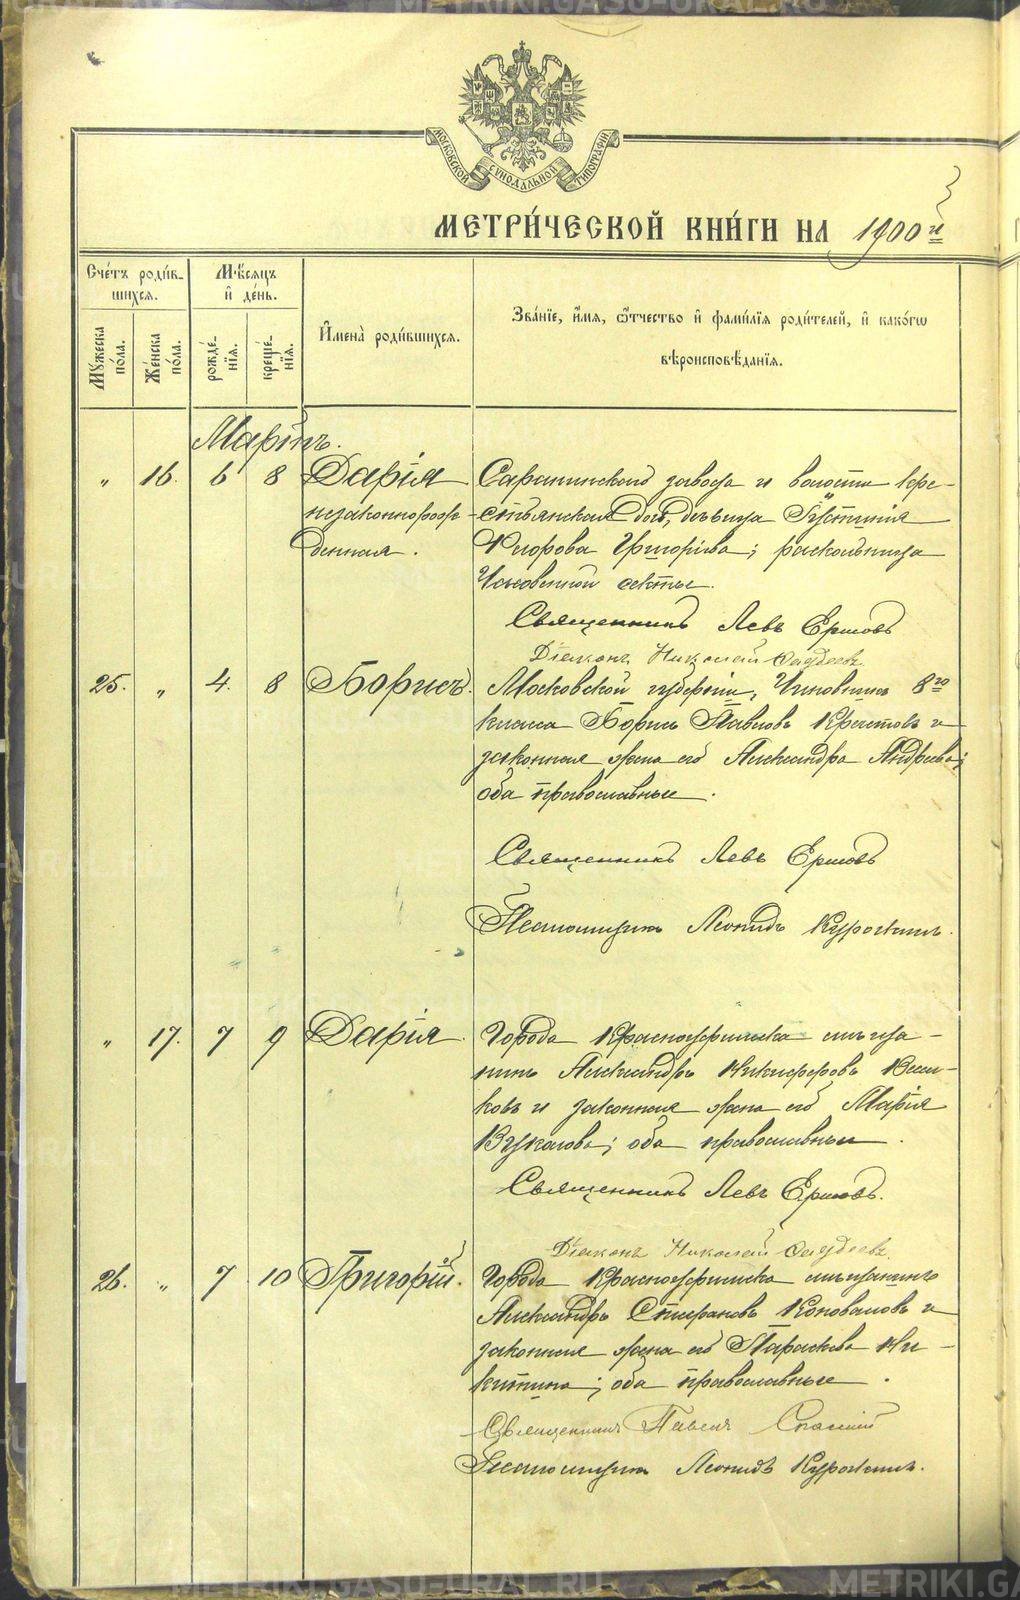 METRIKI.GASO-URAL.RU
МОСКОВСКОЙ СѴНОДАЛЬНОЙ ТИПОГРАФІИ
МЕТРИ́ЧЕСКОЙ КНИ́ГИ НА 1900 й
Счётъ роди́в-
шихся.
Мꙋжеска по́ла.
Же́нска по́ла.
Мѣсяцъ
и҆ де́нь.
рожде́-нїя.
креще́-нїя.
И҆мена̀ роди́вшихся.
Зва́нїе, и҆́мя, ѻ҆́тчество и҆ фами́лїя роди́телей, и҆ како́гѡ
вѣроисповѣ́данїя.
Мартъ.
„ 16. 6 8 Дарія Саранинскаго завода и волости кре-
незаконнорож- стьянская дочь, дѣвица Іустинія
денная. Егорова Григорьева; раскольница
Часовенной секты.
Священникъ Левъ Ершовъ
Діаконъ Николай
25. „ 4. 8 Борисъ. Московской губерніи, Чиновникъ 8го
класса Борисъ Павловъ и
законная жена его Александра Андреева;
оба православные.
Священникъ Левъ Ершовъ
Псаломщикъ Леонидъ Курочкинъ.
„ 17. 7 9 Дарія. Города Красноуфимска мѣща-
нинъ Александръ Никифоровъ
ковъ и законная жена его Марія
Вуколова; оба православные.
Священникъ Левъ Ершовъ.
Діаконъ Николай
26. „ 7 10 Григорій. Города Красноуфимска мѣщанинъ
Александръ Стефановъ Коноваловъ и
законная жена его Параскева Ни-
китина; оба православные.
Священникъ Павелъ Спасскій
Псаломщикъ Леонидъ Курочкинъ.
METRIKI.GASO-URAL.RU